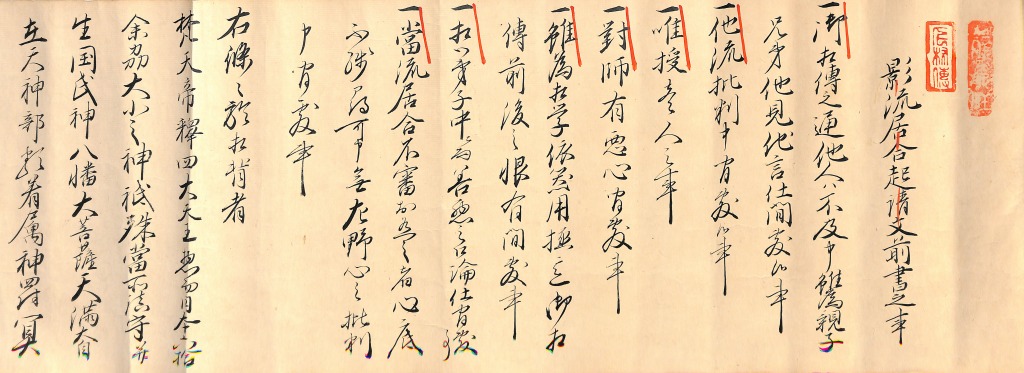 影流居合起請文前書之事
一御相傳之通他人ハ不及申雖為親子
兄弟他見他言仕間敷候事
一他流批判申間敷候事
一唯授壱人之事
一對師有悪心間敷事
一雖為相学依器用極意御相
傳前後之恨有間敷事
一相弟子中ニ而善悪之口論仕間敷
一當流居合不審於有之者心底
不残尋可申無左野心之批判
申間敷事
右條々於相背者
梵天帝釋四大天王惣而日本六拾
余州大小之神祇殊當所鎮守并
生国氏神八幡大菩薩天満大自
在天神部類眷属神罸冥